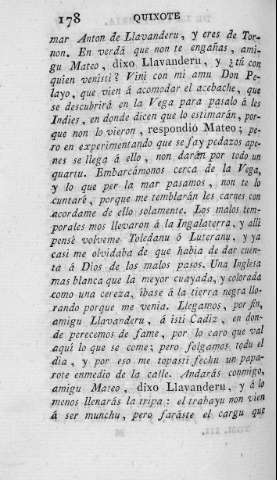 178 QUIXOTE
mar Anton de Llavanderu, y eres de Tor-
non. En verdá que non te engañas, ami-
gu Mateo, dixo Llavanderu, y ¿tú con
quien venisti? Vini con mi amu Don Pe-
layo, que vien á acomodar el acebache, que
se descubrirá en la Vega para pasalo á les
Indies, en donde dicen que lo estimarán, por-
que non lo vieron, respondió Mateo; pe-
ro en experimentando que se fay pedazos ape-
nes se llega á ello, non darán por todo un
quartu. Embarcámonos cerca de la Vega,
y lo que per la mar pasamos, non te lo
cuntaré, porque me temblarán les carnes con
acordame de ello solamente. Los malos tem-
porales mos llevaron á la Ingalaterra, y allí
pensé volveme Toledanu ó Luteranu, y ya
casi me olvidaba de que habia de dar cuen-
ta á Dios de los malos pasos. Una Inglesa
mas blanca que la meyor cuayada, y colorada
como una cereza, ibase á la tierra negra llo-
rando porque me venia. Llegamos, por fin,
amigu Llavanderu, á isti Cadiz, en don-
de perecemos de fame, por lo caro que val
aquí lo que se come; pero folgamos todu el
dia, y por eso me topasti fechu un papa-
rote enmedio de la calle. Andarás conmigo,
amigu Mateo, dixo Llavanderu, y á lo
menos llenarás la tripa: el trabayu non vien
á ser munchu, pero faráste el cargu que